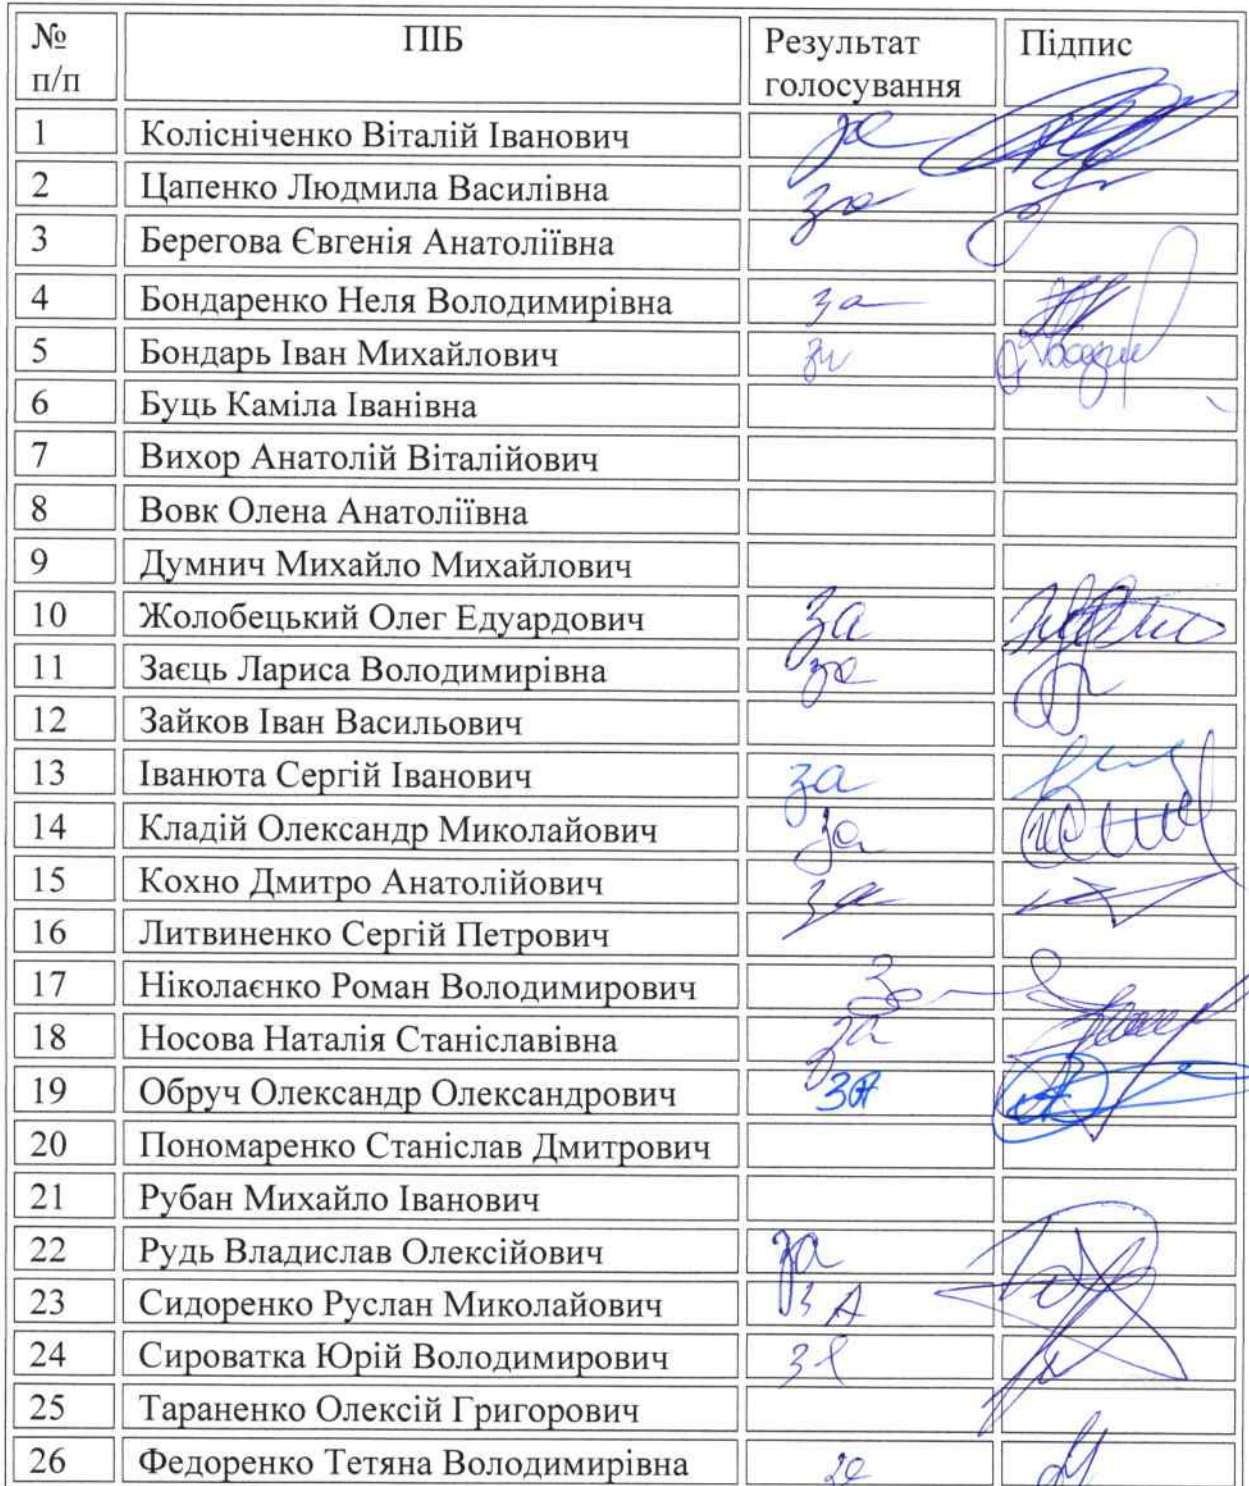 № п/п ПІБ Результат голосування Підпис
1 Колісніченко Віталій Іванович за
2 Цапенко Людмила Василівна за
3 Берегова Євгенія Анатоліївна
4 Бондаренко Неля Володимирівна за
5 Бондарь Іван Михайлович за
6 Буць Каміла Іванівна
7 Вихор Анатолій Віталійович
8 Вовк Олена Анатоліївна
9 Думнич Михайло Михайлович
10 Жолобецький Олег Едуардович за
11 Заєць Лариса Володимирівна за
12 Зайков Іван Васильович
13 Іванюта Сергій Іванович за
14 Кладій Олександр Миколайович за
15 Кохно Дмитро Анатолійович за
16 Литвиненко Сергій Петрович
17 Ніколаєнко Роман Володимирович За
18 Носова Наталія Станіславівна за
19 Обруч Олександр Олександрович ЗА
20 Пономаренко Станіслав Дмитрович
21 Рубан Михайло Іванович
22 Рудь Владислав Олексійович за
23 Сидоренко Руслан Миколайович ЗА
24 Сироватка Юрій Володимирович за
25 Тараненко Олексій Григорович
26 Федоренко Тетяна Володимирівна за